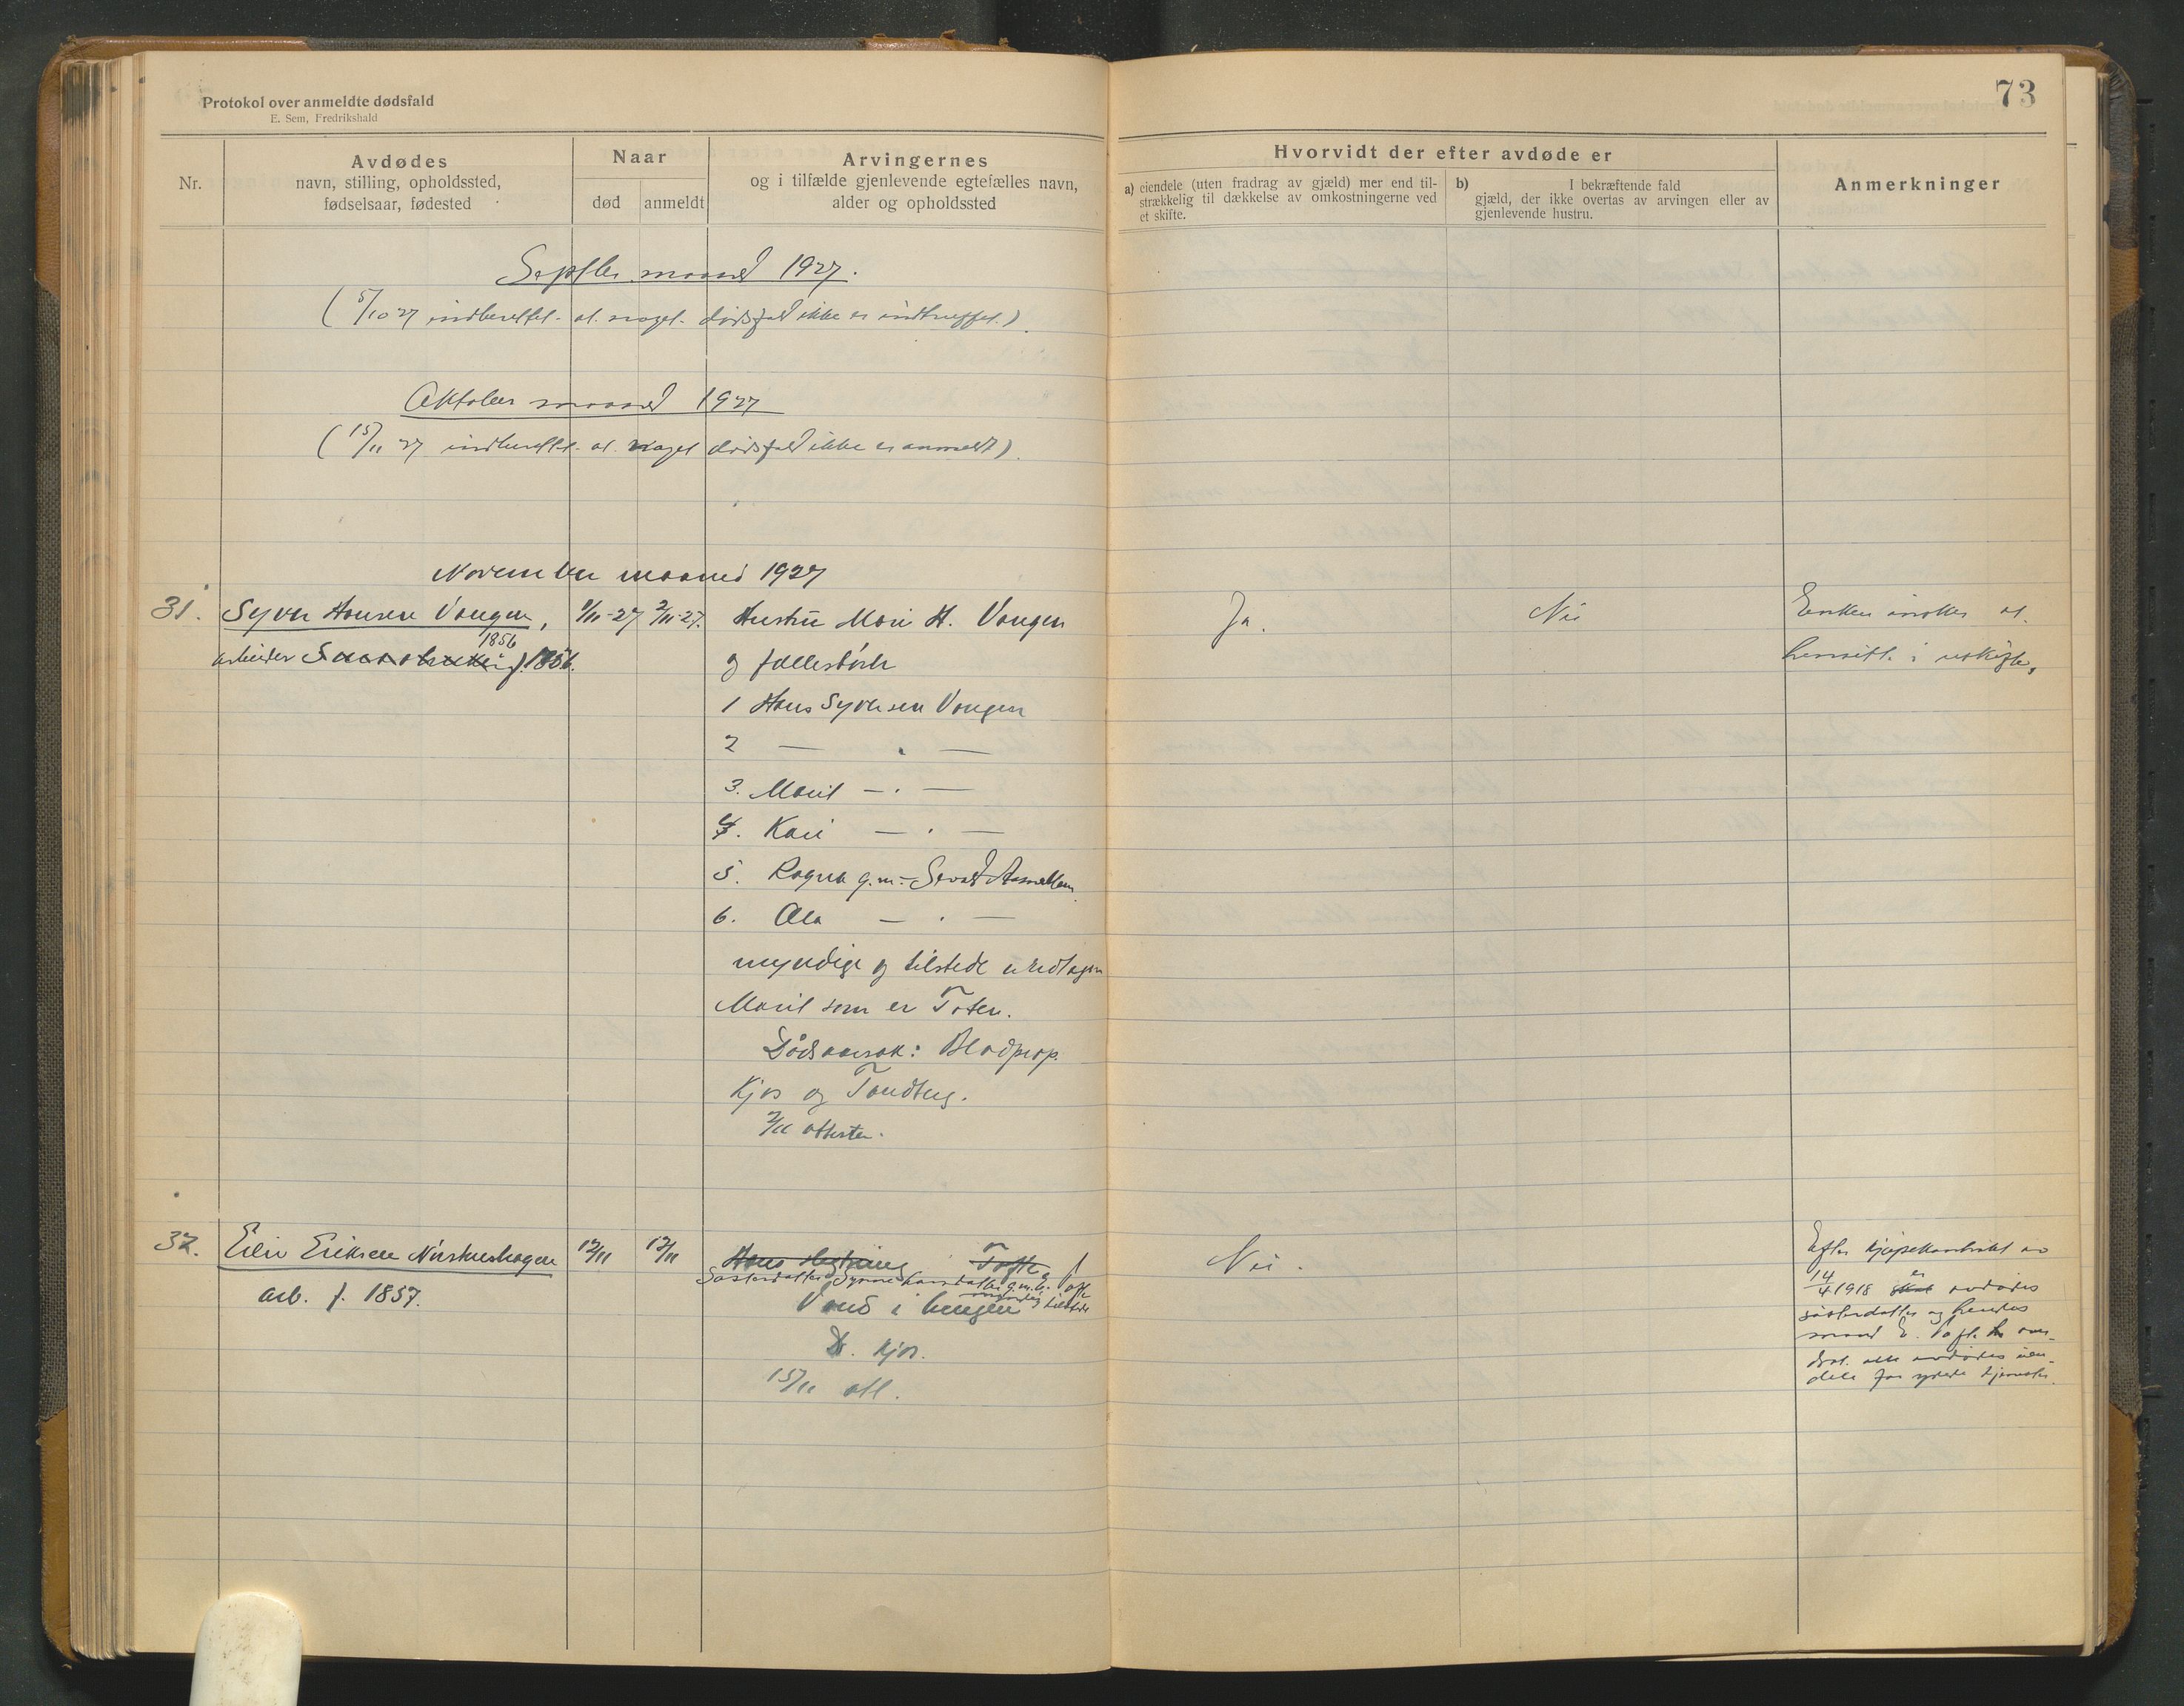 73
Protokol over anmeldte dødsfald
E. Sem, Fredrikshald
Nr.
Avdødes
navn, stilling, opholdssted,
fødselsaar, fødested
Naar
død
anmeldt
Arvingernes
og i tilfælde gjenlevende egtefælles navn,
alder og opholdssted
Hvorvidt der efter avdøde er
a) eiendele (uten fradrag av gjæld) mer end til-
strækkelig til dækkelse av omkostningerne ved
et skifte.
b) I bekræftende fald
gjæld, der ikke overtas av arvingen eller av
gjenlevende hustru.
Anmerkninger
Septbr maaned 1927.
(5/10 27 indberettet at noget dødsfald ikke er indtruffet.)
Oktober maaned 1927
(15/11 27 indberettet at noget dødsfald ikke er anmeldt)
November maaned 1927
31. Syver Hansen Vangen, 1/11-27 2/11-27. Hustru Mari H. Vangen Ja. Nei Enken ønsker at
1856
arbeider f. 1856. og fællesbörn hensitte i uskifte,
1 Hans Syversen Vangen
2 — " —
3. Marit — " —
4. Kari — " —
5. Ragna g.m.
6. Ola — " —
myndige og tilstede undtagen
Marit som er Toten.
Dödsaarsak: Blodprop.
Kjos og Tandberg.
2/11 attester.
32. Eilev Eriksen 12/11 12/11 Hans Tofte Nei. Efter kjøpekontrakt av
Søsterdatter g.m. E. Tofte 14/4 1918 er avdødes
arb. f. 1857. Vand i lungen myndig tilstede
søsterdatter og hendes
D. Kjos. mand E. Tofte over-
drat alle avdødes eien-
15/11 att. dele for ydede tjenester.